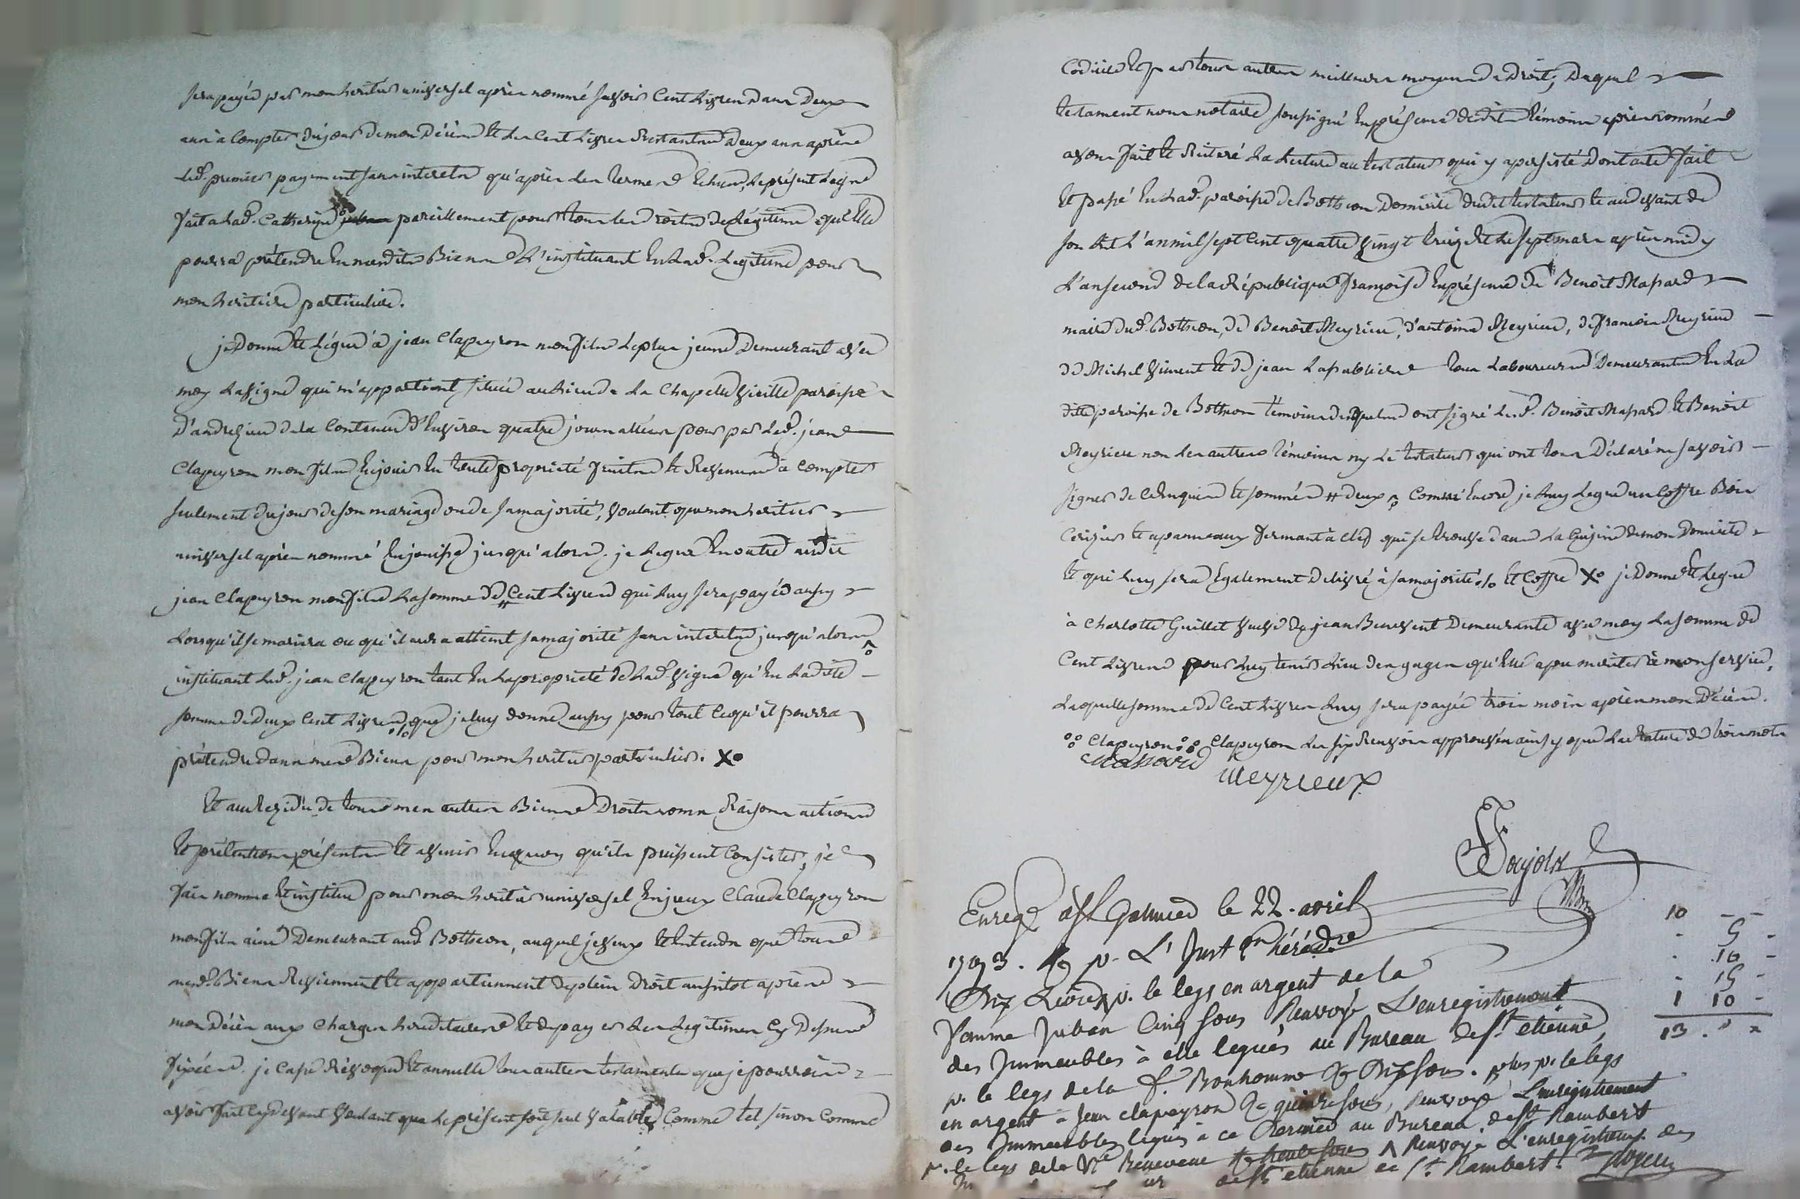 sera payée par mon heritier universel après nommé savoir Cent Livres dans deux
ans à Compter du jour de mon Décès et Les Cent Livres Restantes Deux ans après
Led. premier payement sans interets qu'après Les termes Echus, Le présent Legat
fait a Lad. Catherine pareillement pour tous Les droits de Légitime qu'Elle
pourra prétendre En mesdits Biens L'instituant En Lad. Legitime pour
mon heritiere particuliere.
je Donne et Légue à jean Clapeyron mon fils Le plus jeune Demeurant avec
moy La vigne qui m'appartient, située au Lieu de La Chapelle vieille paroisse
D'andrezieu de la Contenue d'Environ quatre journalées pour par Led. jean
Clapeyron mon fils En jouir En toute propriété fruits et Revenus à Compter
seulement du jour de son mariage ou de sa majorité, voulant que mon heritier
universel après nommé En jouisse jusqu'alors. je Legue En outre audit
jean Clapeyron mon fils La somme de Cent Livres qui Luy sera payée aussy
Lorsqu'il se mariera ou qu'il aura atteint sa majorité sans interets jusqu'alors
instituant Led. jean Clapeyron tant En La propriété de Lad. vigne qu'En Ladite
somme de Deux Cent Livres que je Luy donne aussy pour tout Ce qu'il pourra
prétendre dans mes Biens pour mon heritier particulier. X°
Et au Rezidu de tous mes autres Biens Droits noms Raisons actions
Et prétentions présents et avenir En quoy qu'ils puissent Consister, je
fais nomme Et institue pour mon heritier universel Claude Clapeyron
mon fils ainé Demeurant aud. Bothéon, auquel je veux Et Entends que tous
mesd. Biens Reviennent et appartiennent de plein Droit aussitot après
mon Décès aux Charges hereditaires Et de payer Les Legitimes Cy Dessus
fixées. je Casse Révoque Et annulle tous autres testaments que je pourrois
avoir fait Cy devant Voulant que Le présent soit seul valable Comme tel sinon Comme
Codicile Et par tous autres meilleurs moyens de Droit, Duquel
testament nous notaire soussigné En présence desdits témoins après nommés
avons fait et Réitéré La Lecture au testateur qui y a persisté Dont acte fait
Et passé En Lad. paroisse de Bothéon Domicile dudit testateur et au devant de
son Lit L'an mil sept Cent quatre vingt treize Et Le sept mars après midy
L'an second de la République françoise En présence de Benoit Mapard
maire dud. Bothéon, de Benoit Meyrieu, d'antoine Meyrieu, de françois Meyrieu
de Michel Viment et de jean Lapabliere tous Laboureurs Demeurants En La
dite paroisse de Bothéon témoins Desquels ont signé Led. Benoit Mapard Et Benoit
Meyrieu non Les autres témoins ny Le testateur qui ont tous Déclaré ne savoir
signer de Ce Enquis Et sommés # deux Comme Encore je Luy Legue un Coffre Bois
Cerisier et a panneaux fermant à Clef qui se trouve dans La Cuizine de mon Domicile
Et qui Luy sera Egalement Delivré à sa majorité °/° Et Coffre X° je Donne Et Legue
à Charlotte Guillet veuve de jean Benevent Demeurante avec moy La somme de
Cent Livres pour Luy tenir Lieu des gages qu'Elle a pu meriter à mon service,
Laquelle somme de Cent Livres Luy sera payée trois mois après mon Décès.
Clapeyron Clapeyron Les six Renvois approuvés ainsy que La Rature de trois mots
Mapard Meyrieux
Enregé à St Galmier le 22. avril
1793. p. L'Inst on héréd re
Dix Livres p. le legs en argent de la
femme Juban Cinq sous Renvoyé L'enregistrement
des Immeubles à elle legués au Bureau de St etienne,
p. le legs de la fe Bonhomme Dix sous. plus p. le legs
en argent à Jean clapeyron quinze sous, Renvoyé L'enregistrement
des Immeubles legués à ce Dernier au Bureau de St Rambert
p. le legs de la Ve Benevent Renvoyé L'enregistremt. des
de St etienne et St Rambert.
10 - -
- 5 -
- 10 -
- 15 -
1 10 -
13 . " "